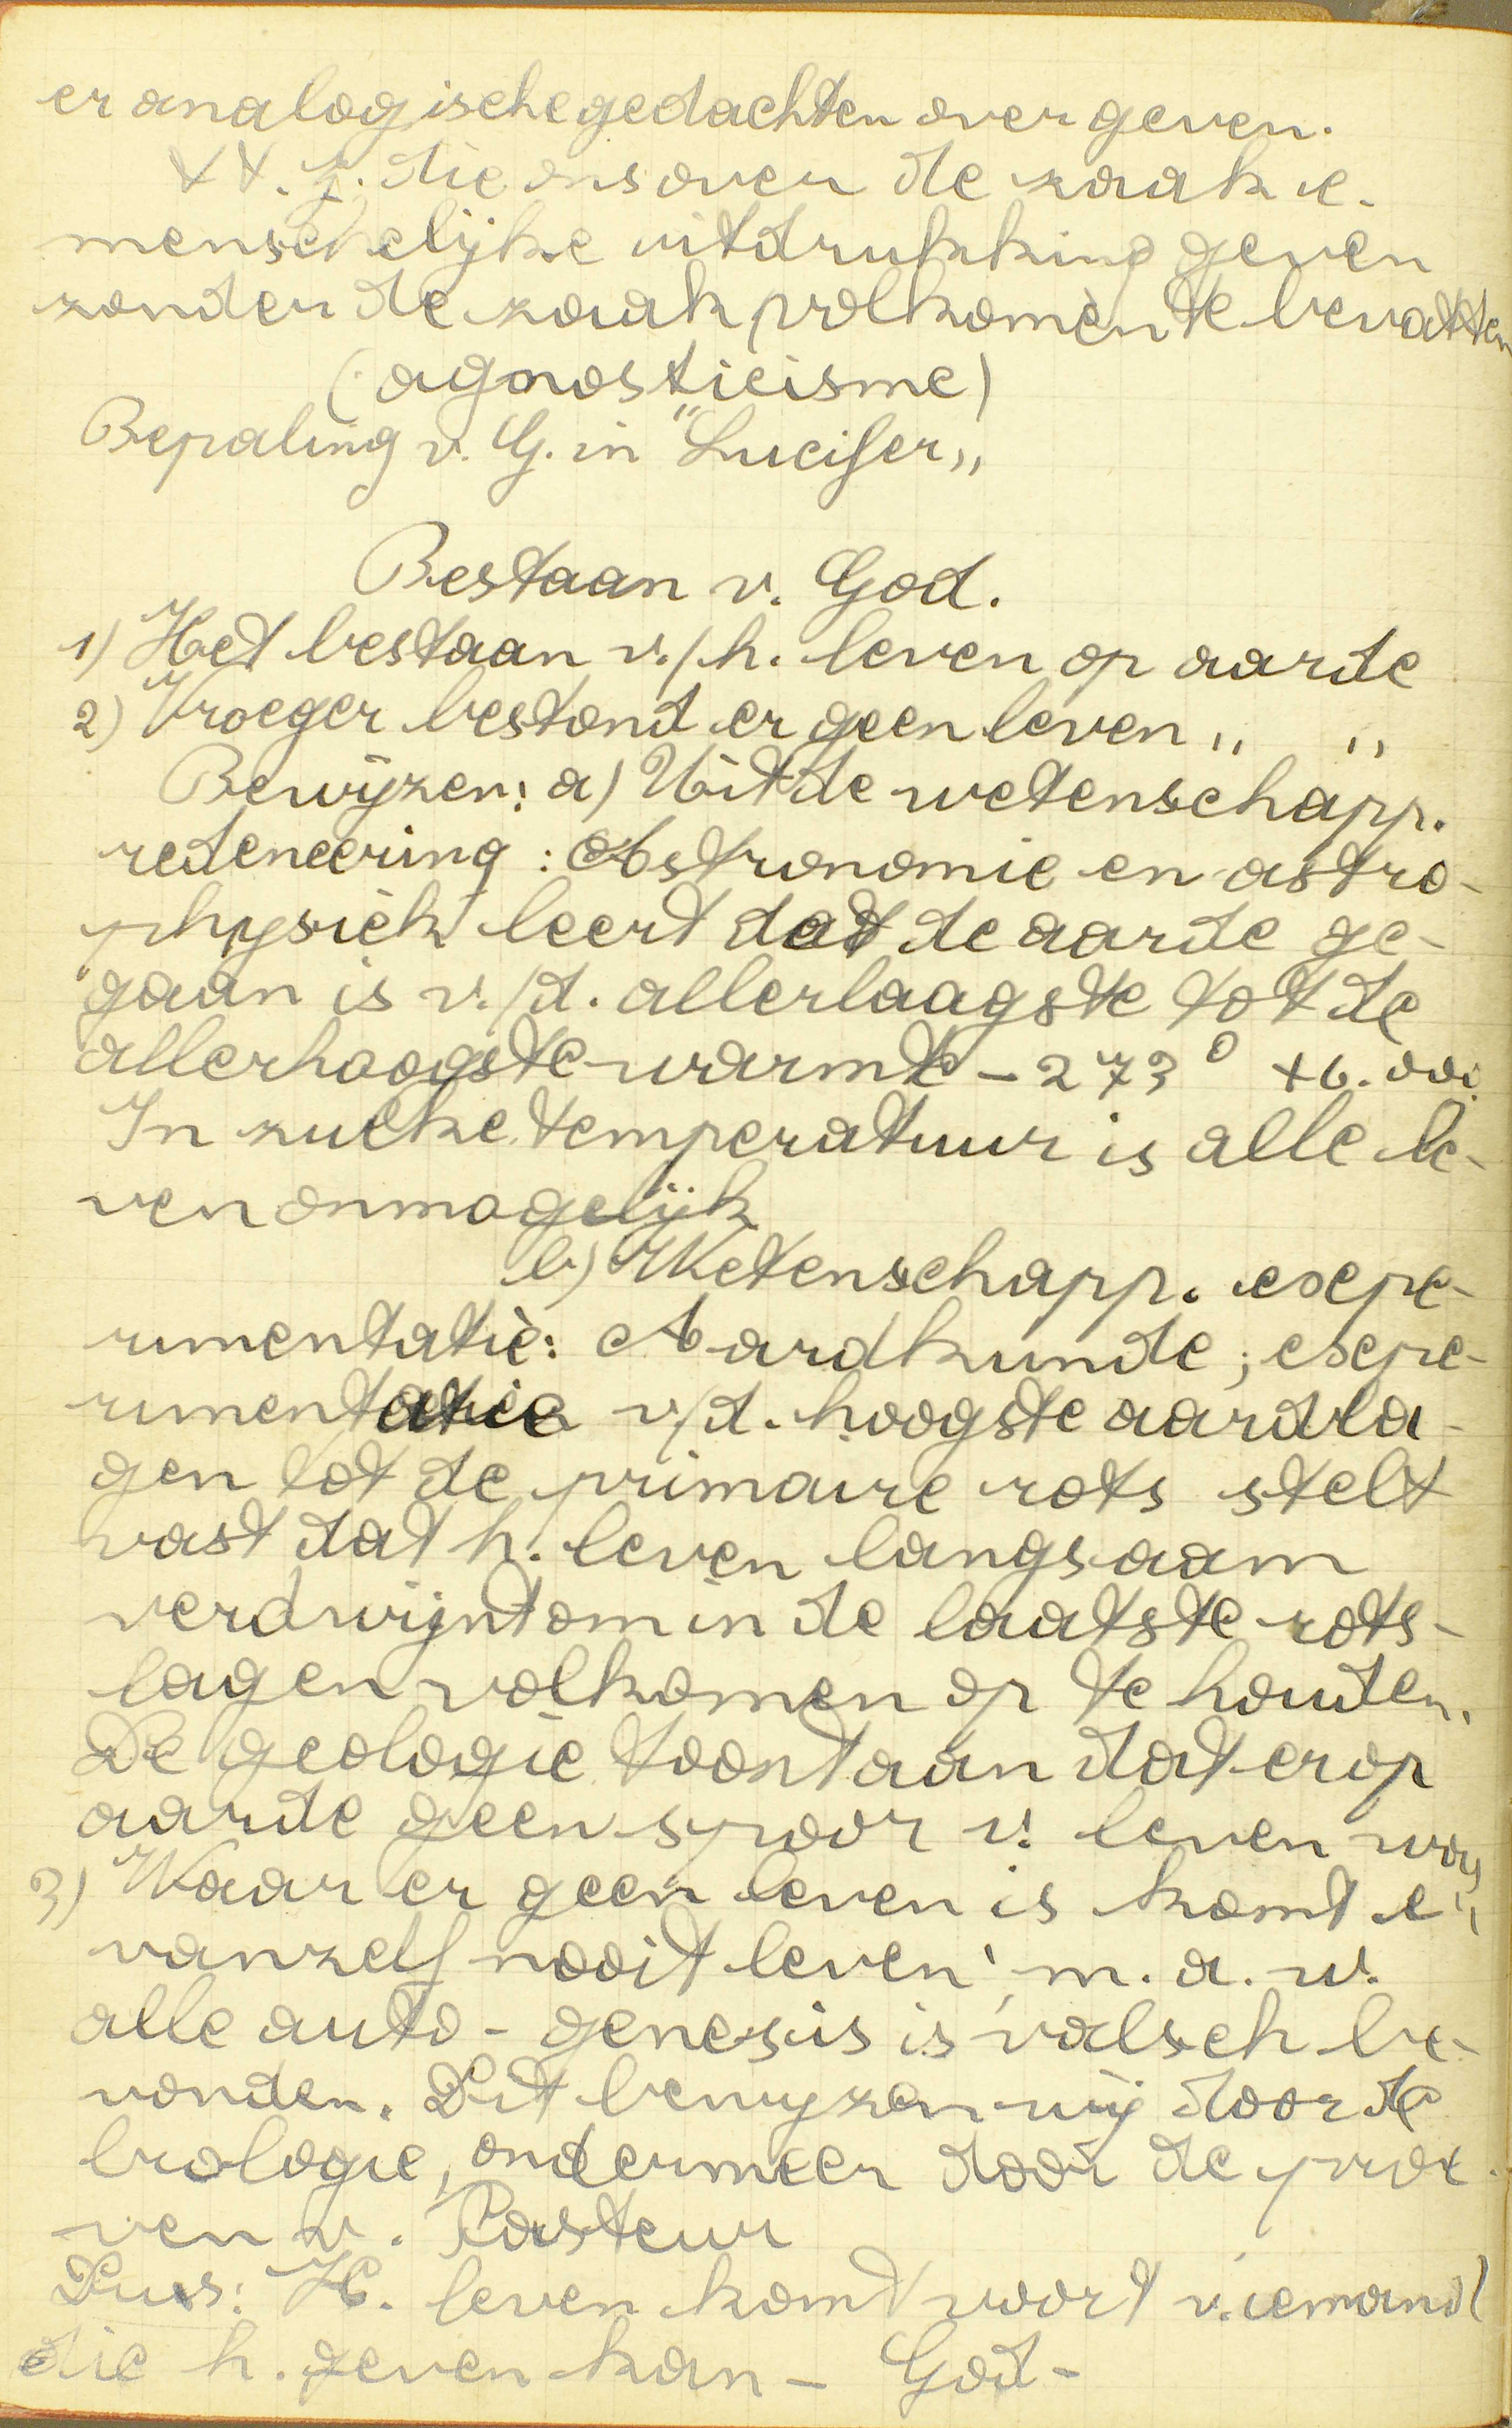 er analogische gedachten over geven.
W. z. die ons over de zaak e.
menschelijke uitdrukking geven
zonder de zaak volkomen te bevatten
(agnosticisme)
Bepaling v. G. in "Lucifer„
Bestaan v. God.
1) Het bestaan v./h. leven op aarde
2) Vroeger bestond er geen leven „ „
Bewijzen: a) Uit de wetenschapp.
redeneering: Astronomie en astro-
physiek leert dat de aarde ge-
gaan is v./d. allerlaagste tot de
allerhoogste warmte - 273° +6.000
In zulke temperatuur is alle le-
ven onmogelijk
b) Wetenschapp. expe-
rimentatie: Aardkunde; expe-
rimentatie v/d. hoogste aardla-
gen tot de primaire rots stelt
vast dat h. leven langsaam
verdwijnt om in de laatste rots-
lagen volkomen op te houden.
De geologie toont aan dat er op
aarde geen spoor v. leven was
3) Waar er geen leven is komt er
vanzelf nooit leven; m. a. w.
alle auto-genesis is valsch be-
vonden. Dit bewyzen wij door de
biologie, ondermeer door de proe-
ven v. Pasteur
Dus: H. leven komt voort v. iemand
die h. geven kan - God -